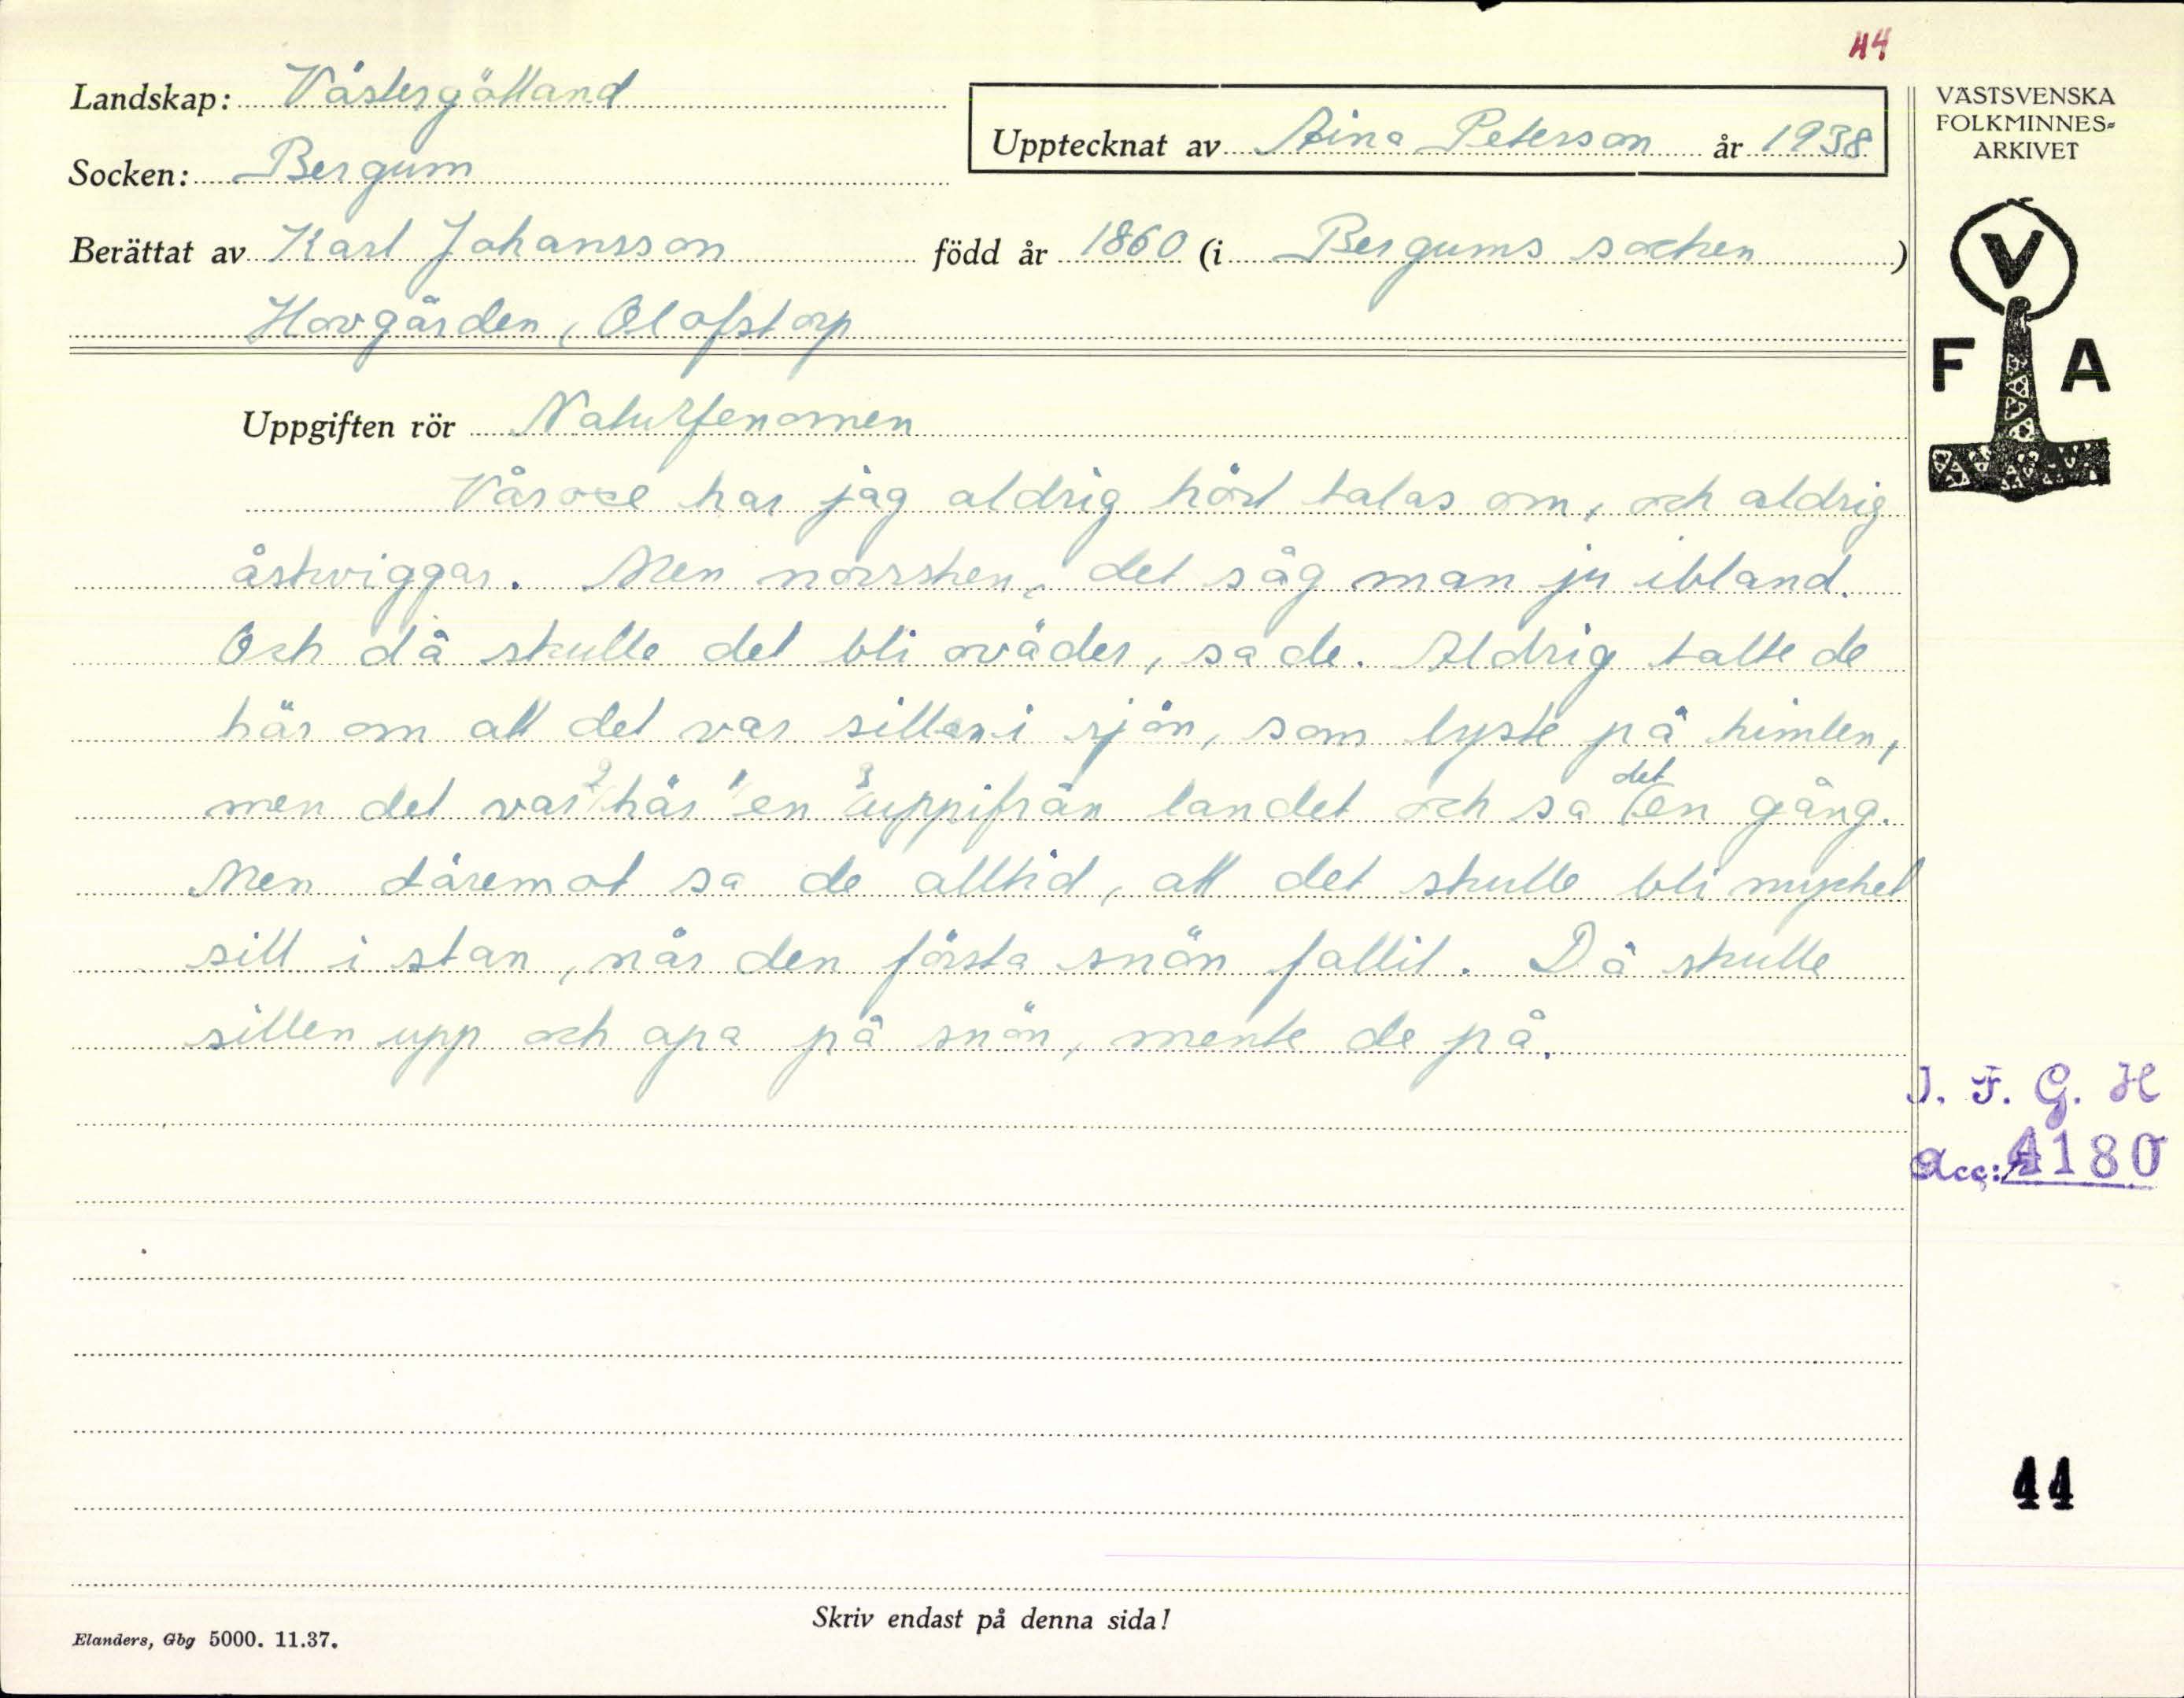 44
Landskap: Västergötland
Upptecknat av Aina Peterson år 1938
Socken: Bergum
Berättat av Karl Johansson född år 1860 (i Bergums socken)
Hovgården, Olofstorp
Uppgiften rör Naturfenomen
Våroxe har jag aldrig hört talas om, och aldrig
åskviggar. Men norrsken, det såg man ju ibland.
Och då skulle det bli oväder, sa de. Aldrig talte de
här om att det var sillen i sjön, som lyste på himlen,
men det var 2 här 1 en 3 uppifrån landet och sa det en gång.
Men däremot sa de alltid, att det skulle bli mycket
sill i stan, när den första snön fallit. Då skulle
sillen upp och apa på snön, mente de på.
Skriv endast på denna sida!
Elanders, Gbg 5000. 11.37.
VÄSTSVENSKA
FOLKMINNES-
ARKIVET
V
F A
I. F. G. H
Acc: 4180
44